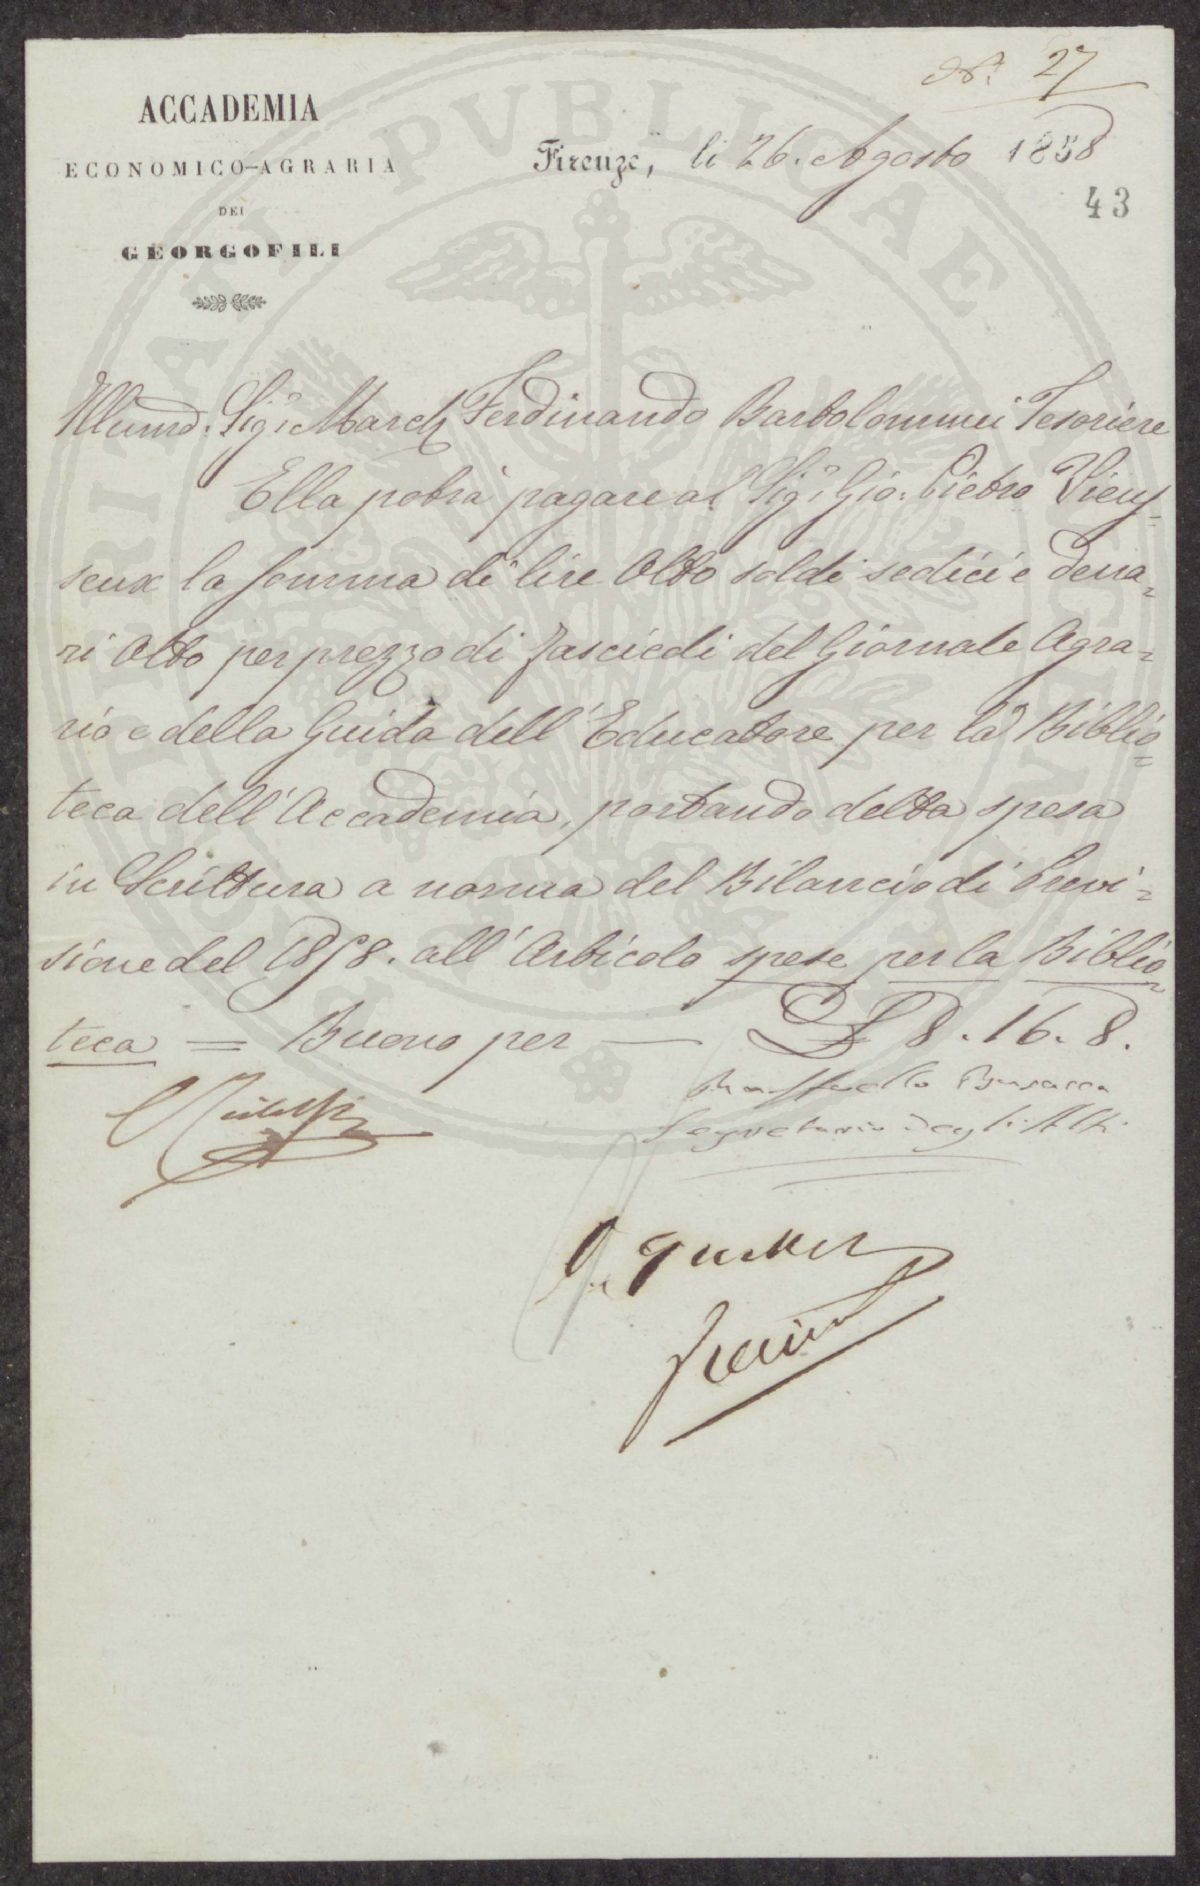 N.° 27
ACCADEMIA
ECONOMICO-AGRARIA
DEI
GEORGOFILI
Firenze, li 26. Agosto 1858
43
Illumo. Sig.r March Ferdinando Bartolommei Tesoriere
Ella potrà pagare al Sig.r Gio. Pietro Vieus=
seux la somma di lire Otto soldi sedici e dena=
ri Otto per prezzo di fascicoli del Giornale Agra=
rio e della Guida dell'Educatore per la Biblio=
teca dell'Accademia, portando detta spesa
in Scrittura a norma del Bilancio di Previ=
sione del 1858. all'Articolo spese per la Biblio=
teca = Buono per — £ 8. 16. 8.
Raffaello Busacca
Segretario degli Atti